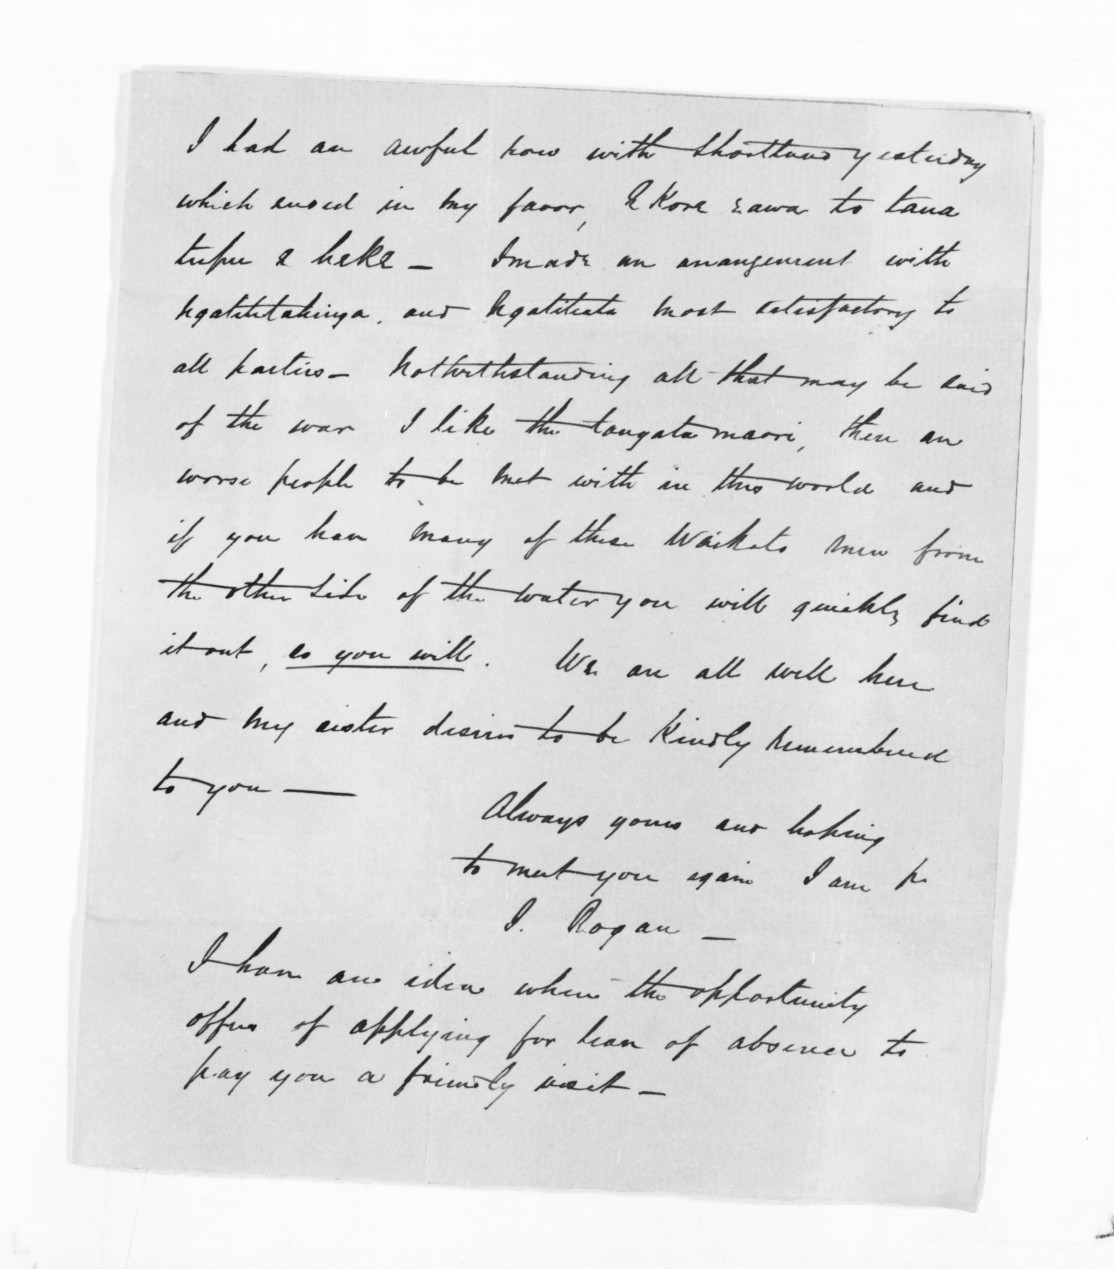 I had an awful row with Shortland yesterday
which ended in my favor, E Kore rawa to tana
tupu e heke —   I made an arrangement with
Ngatitetahinga. and Ngatitiata most satisfactory to
all parties — Notwithstanding all that may be said
of the war I like the tangata maori, there are
worse people to be met with in this world and
if you have many of these Waikato men from
the other side of the water you will quickly find
it out, so you will.   We are all well here
and my sister desires to be kindly remembered
to you —
Always yours and hoping
to meet you again I am
J. Rogan —
I have an idea when the opportunity
offers of applying for leave of absence to
pay you a friendly visit —